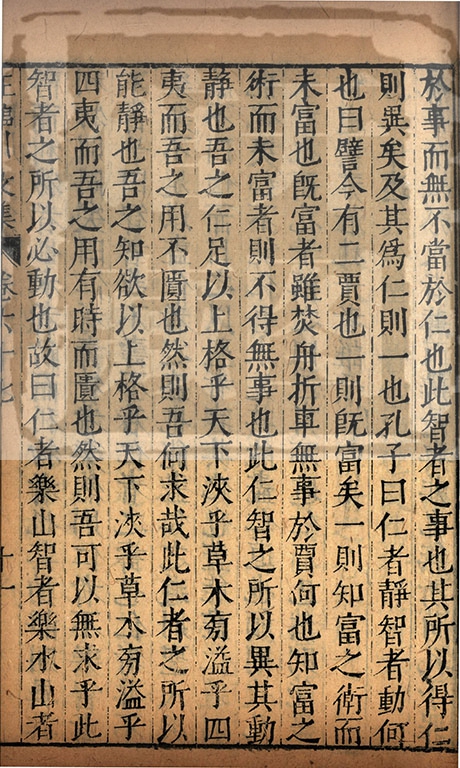 於事而無不當於仁也此智者之事也其所以得仁
則異矣及其為仁則一也孔子曰仁者靜智者動何
也曰譬今有二賈也一則既富矣一則知富之術而
未富也既富者雖焚舟折車無事於賈何也知富之
術而未富者則不得無事也此仁智之所以異其動
静也吾之仁足以上格乎天下浹乎草木㫄溢乎四
夷而吾之用不匱也然則吾何求哉此仁者之所以
能靜也吾之知欲以上格乎天下浹乎草木㫄溢乎
四夷而吾之用有時而匱也然則吾可以無求乎此
智者之所以必動也故曰仁者樂山智者樂水山者
王臨川文集 卷六十七 十一